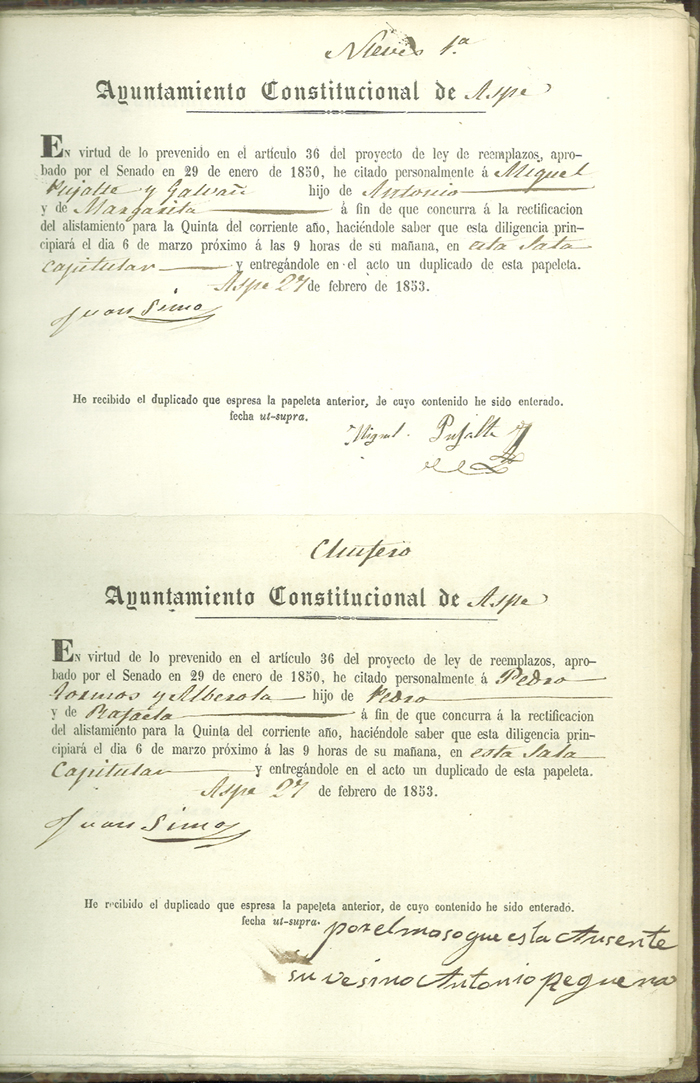 Nieves 1.ª
Ayuntamiento Constitucional de Aspe
En virtud de lo prevenido en el artículo 36 del proyecto de ley de reemplazos, apro-
bado por el Senado en 29 de enero de 1850, he citado personalmente á Miguel
Pujalte y Galvañ hijo de Antonio
y de Margarita á fin de que concurra á la rectificacion
del alistamiento para la Quinta del corriente año, haciéndole saber que esta diligencia prin-
cipiará el dia 6 de marzo próximo á las 9 horas de su mañana, en esta Sala
capitular y entregándole en el acto un duplicado de esta papeleta.
Aspe 27 de febrero de 1853.
Juan Simo
He recibido el duplicado que espresa la papeleta anterior, de cuyo contenido he sido enterado.
fecha ut-supra.
Miguel Pujalte
Ayuntamiento Constitucional de Aspe
En virtud de lo prevenido en el artículo 36 del proyecto de ley de reemplazos, apro-
bado por el Senado en 29 de enero de 1850, he citado personalmente á Pedro
y Alberola hijo de Pedro
y de Rafaela á fin de que concurra á la rectificacion
del alistamiento para la Quinta del corriente año, haciéndole saber que esta diligencia prin-
cipiará el dia 6 de marzo próximo á las 9 horas de su mañana, en esta Sala
Capitular y entregándole en el acto un duplicado de esta papeleta.
Aspe 27 de febrero de 1853.
Juan Simo
He recibido el duplicado que espresa la papeleta anterior, de cuyo contenido he sido enterado.
fecha ut-supra.
por el moso que esta Ausente
su vesino Antonio Requena